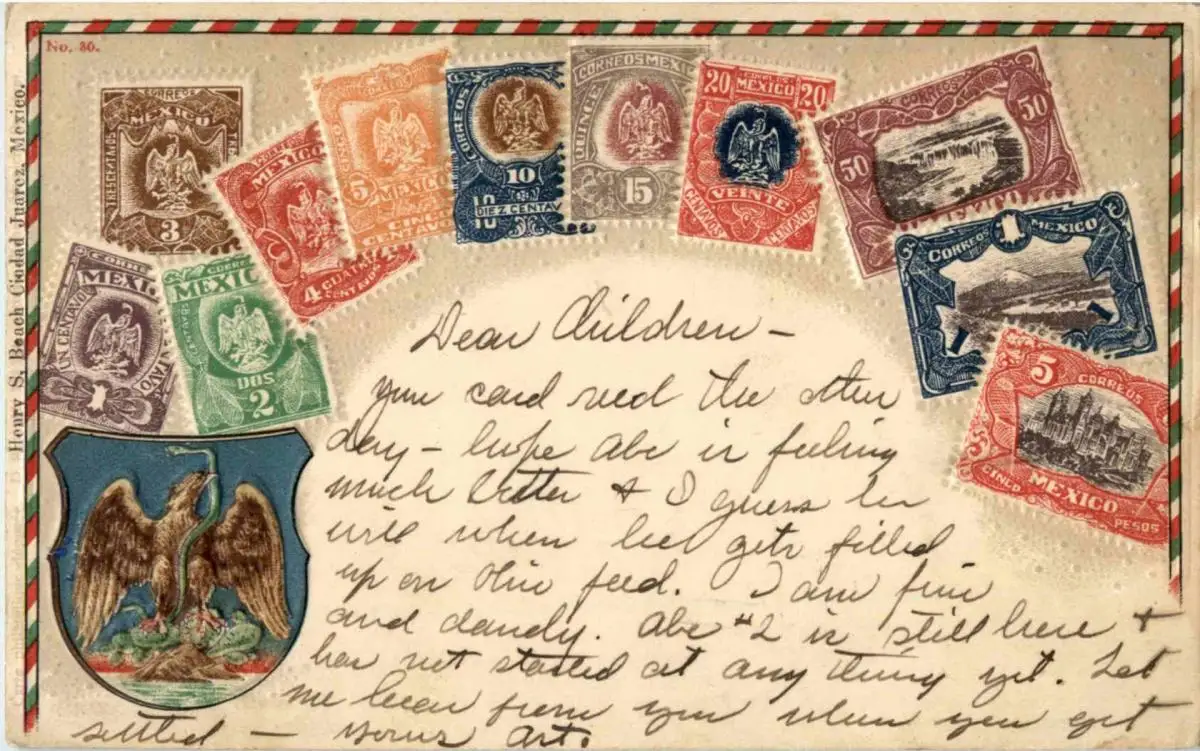 No. 30.
Henry S. Beach Ciudad Juarez, Mexico.
CORREOS
MEXICO
3
CORREOS
MEXICO
4
CUATRO
CENTAVOS
5
MEXICO
CINCO
CENTAVOS
CORREOS
10
10
DIEZ CENTAV
CORREOS MEXICO
QUINCE
15
20
MEXICO
20
VEINTE
CENTAVOS
CENTAVOS
CORREOS
50
50
MEXICO
CORREOS
1
MEXICO
1
1
5
CORREOS
5
CINCO
MEXICO
PESOS
CORRE
MEXI
UN CENTAVO
TAVO
1
CORREO
MEXIC
CENTAVOS
DOS
2
Dear Children —
your card recd the other
day — hope Abe is feeling
much better & I guess he
will when he gets filled
up on Ohio feed. I am fine
and dandy. Abe #2 is still here &
has not started at any thing yet. Let
me hear from you when you get
settled — Yours Art.